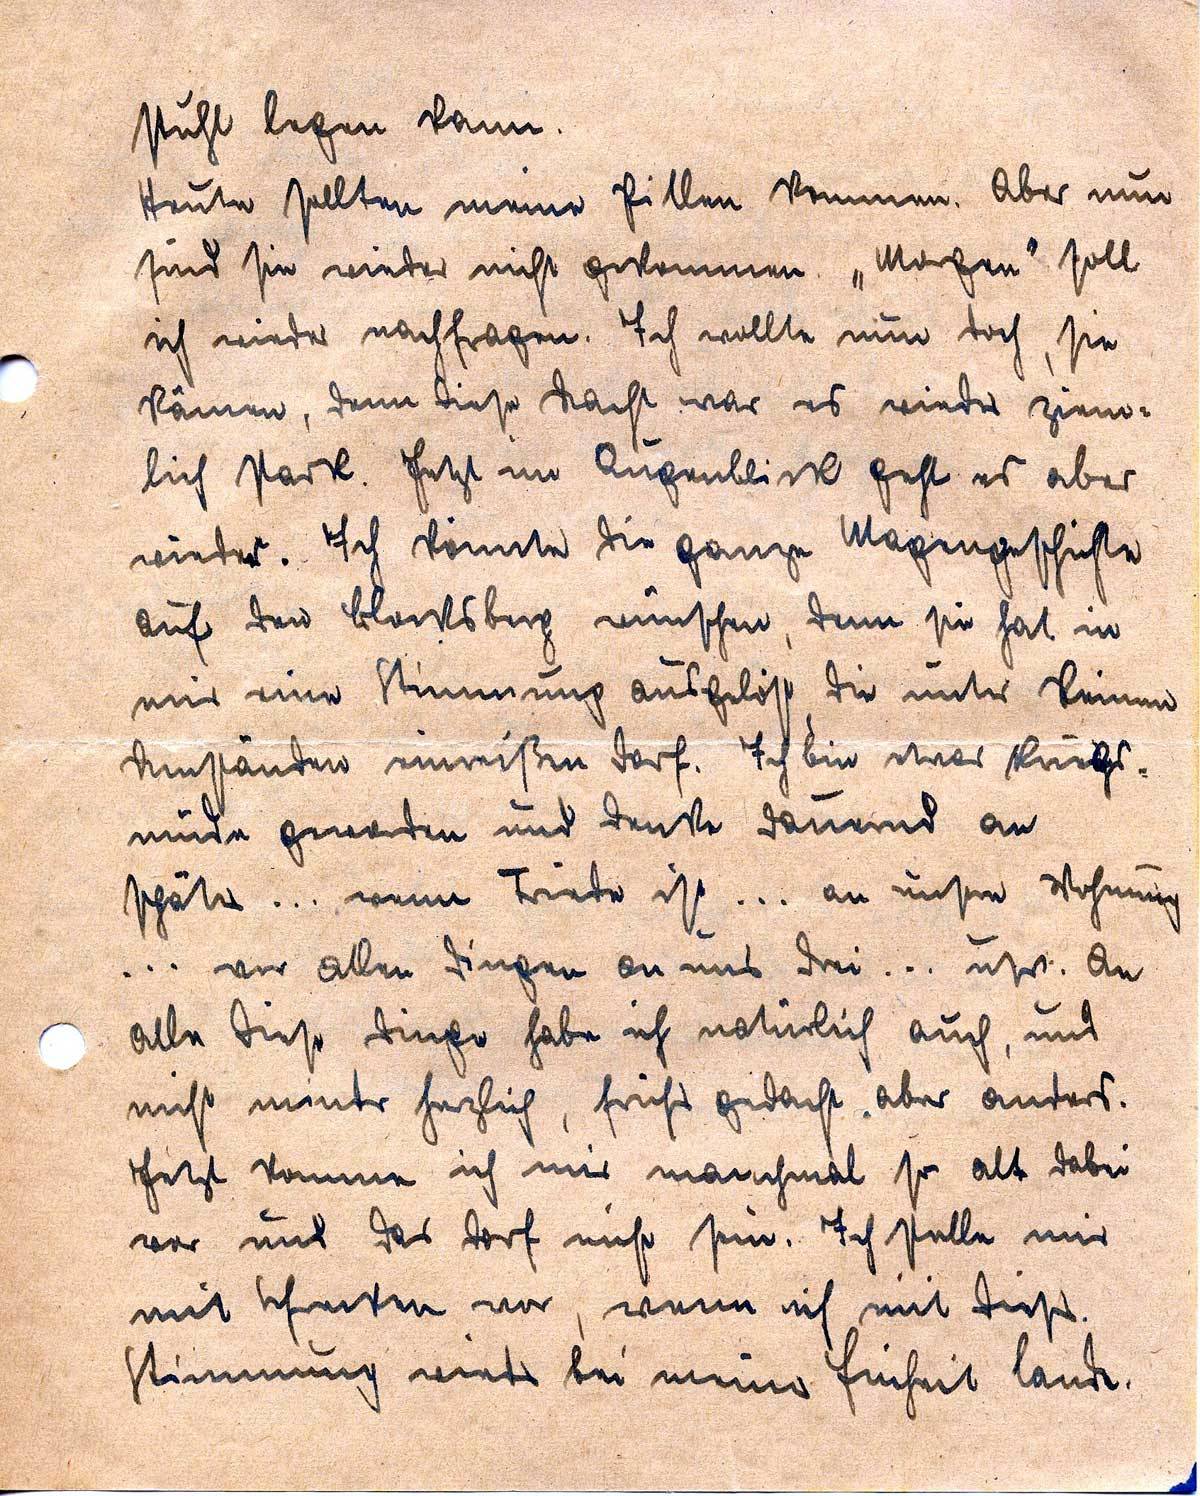 stuhl legen kann.
Heute sollten meine Pillen kommen. Aber nun
sind sie wieder nicht gekommen. „Morgen" soll
ich wieder nachfragen. Ich wollte nun doch, sie
kämen, denn diese Nacht war es wieder ziem-
lich stark. Jetzt im Augenblick geht es aber
wieder. Ich könnte die ganze Magengeschichte
auf den Blocksberg wünschen, denn sie hat in
mir eine Stimmung ausgelöst, die unter keinen
Umständen einreißen darf. Ich bin etwas kriegs-
müde geworden und denke dauernd an
später ... wenn Friede ist ... an unsere Wohnung
... vor allen Dingen an uns drei ... usw. An
alle diese Dinge habe ich natürlich auch, und
nicht minder herzlich, früher gedacht, aber anders.
Jetzt komme ich mir manchmal so alt dabei
vor und das darf nicht sein. Ich stelle mir
mit Schrecken vor, wenn ich mit dieser
Stimmung wieder bei meiner Einheit lande.